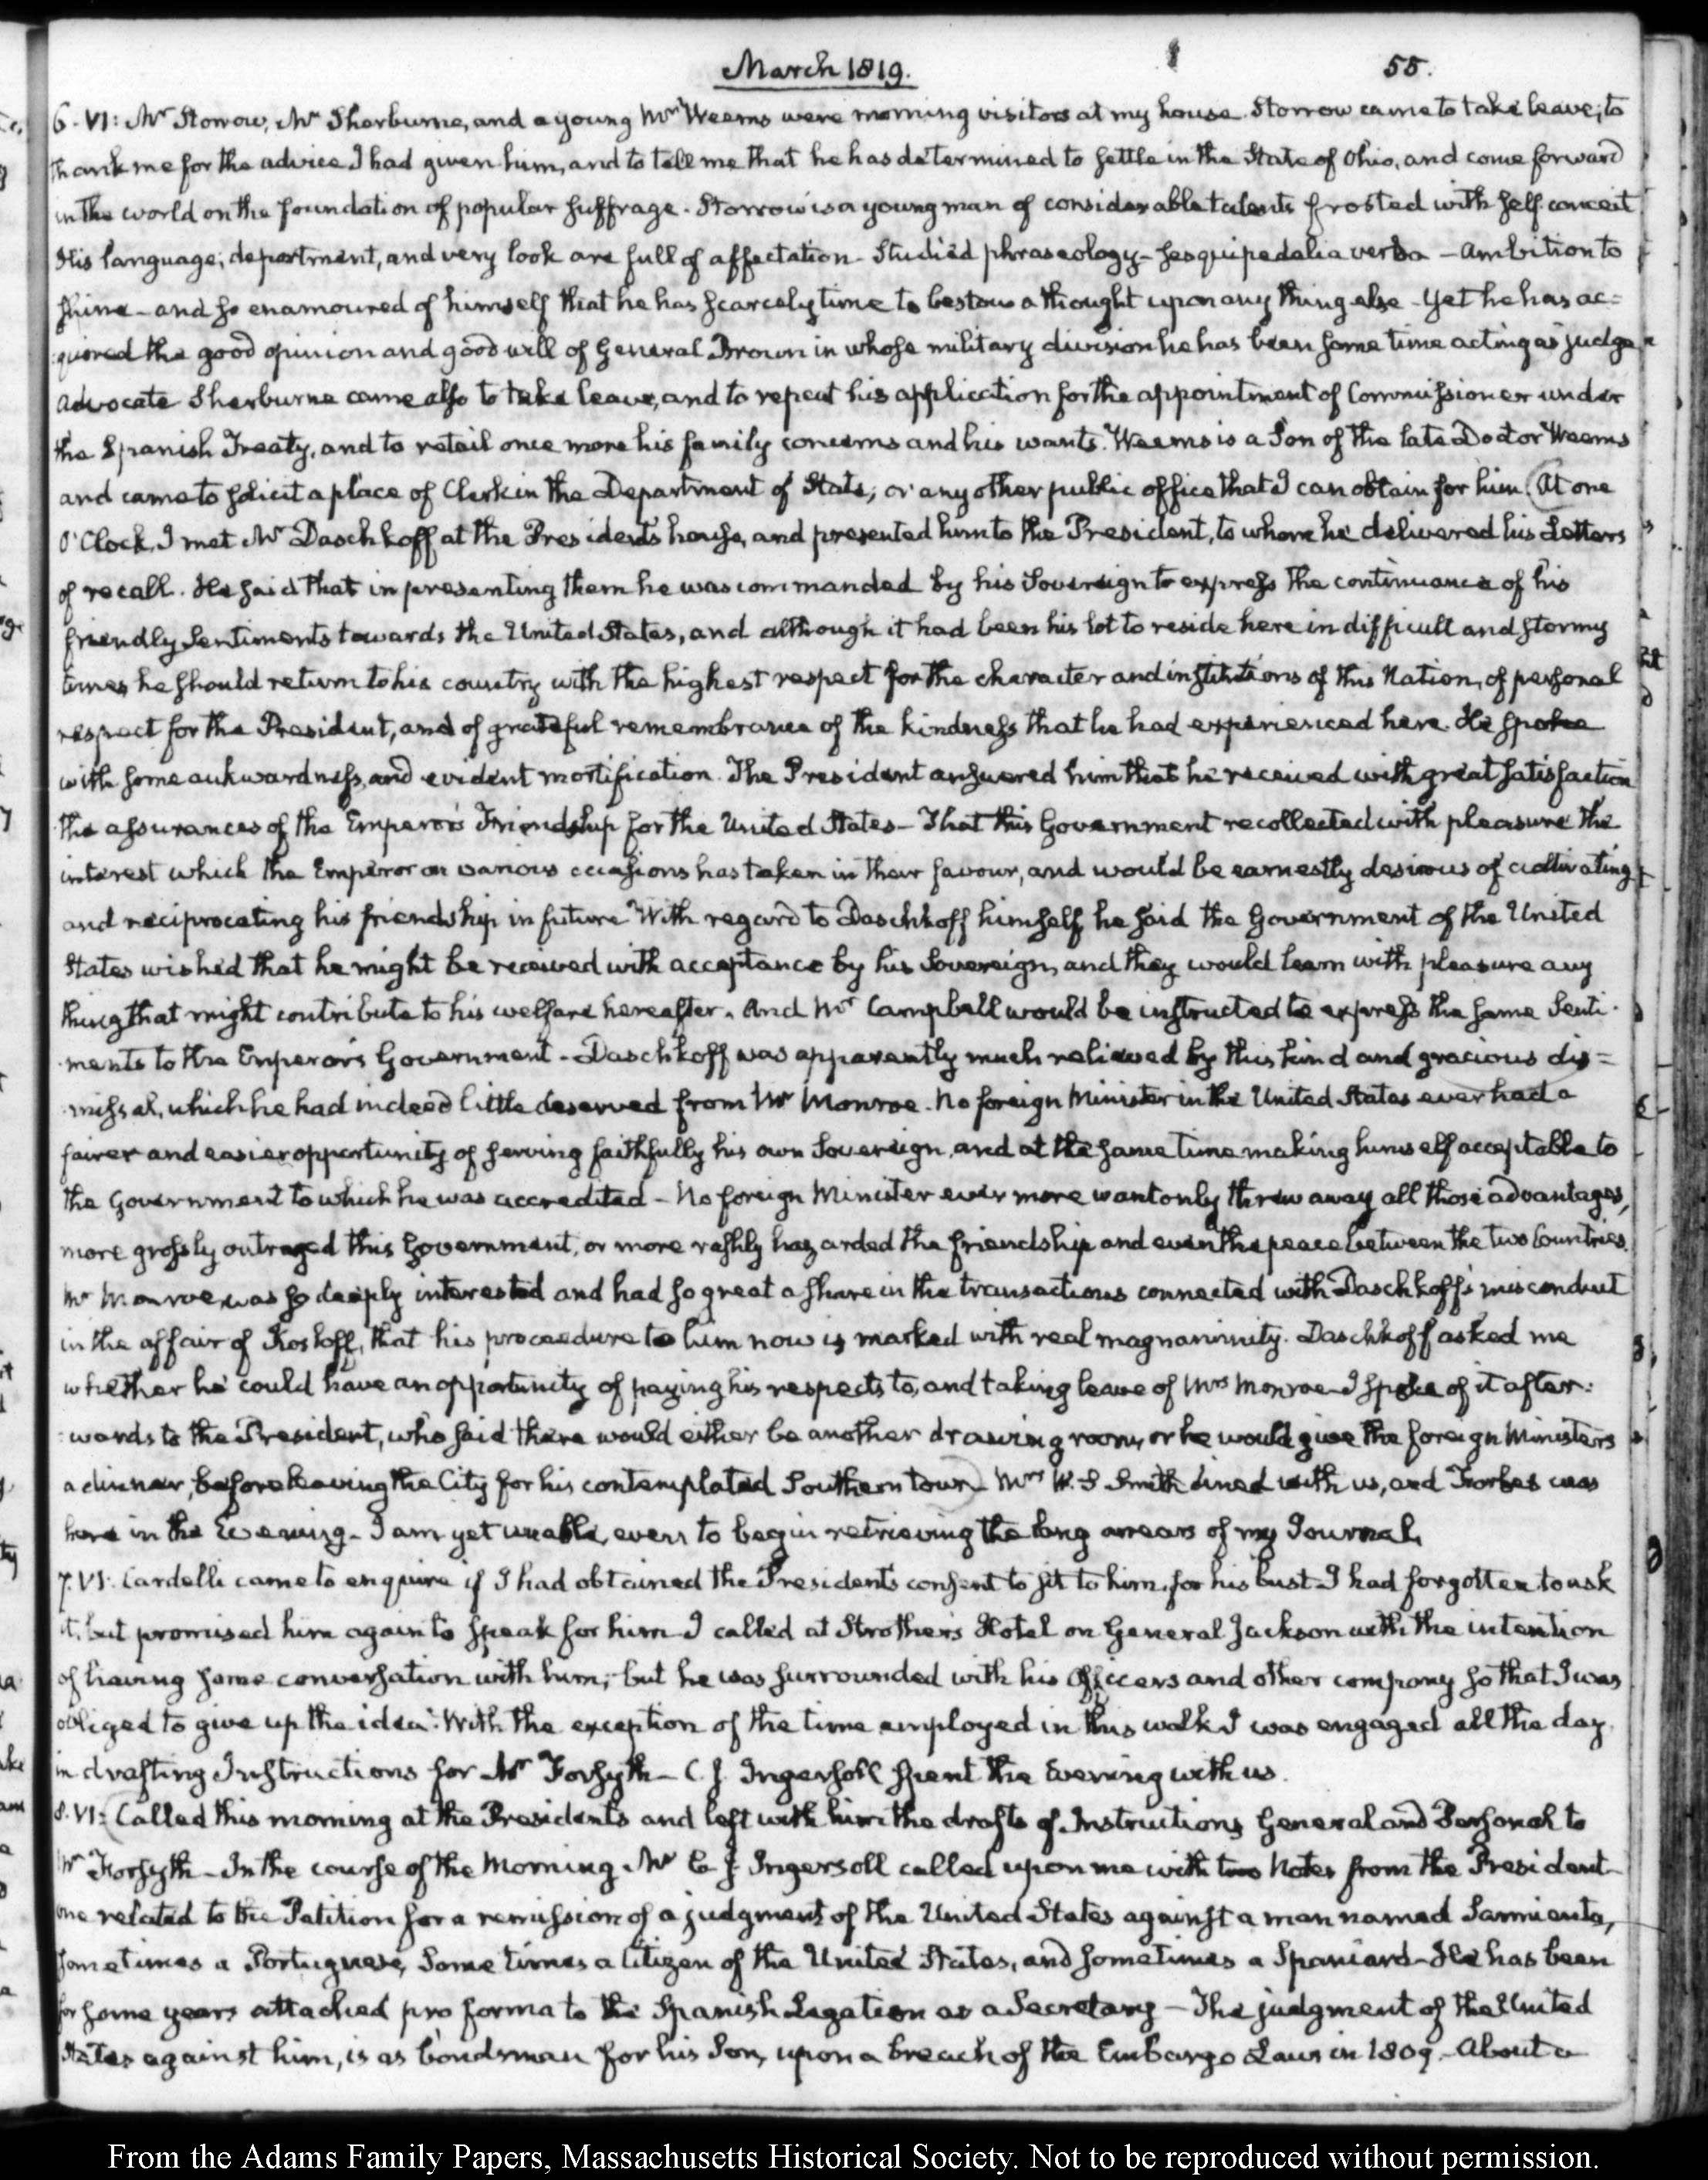 March 1819. 55.
6. VI: Mr Storrow, Mr Sherburne, and a young Mr Weems were morning visitors at my house. Storrow came to take leave; to
thank me for the advice I had given him, and to tell me that he has determined to settle in the State of Ohio, and come forward
in the world on the foundation of popular suffrage. Storrow is a young man of considerable talents frosted with self conceit
His language, deportment, and very look are full of affectation - Studied phraseology - sesquipedalia verba - Ambition to
shine - and so enamoured of himself that he has scarcely time to bestow a thought upon any thing else - Yet he has ac=
quired the good opinion and good will of General Brown in whose military division he has been some time acting as judge
advocate Sherburne came also to take leave, and to repeat his application for the appointment of Commissioner under
the Spanish Treaty, and to retail once more his family concerns and his wants. Weems is a Son of the late Doctor Weems
and came to solicit a place of Clerk in the Department of State, or any other public office that I can obtain for him. (At one
O'Clock, I met Mr Daschkoff at the President's house, and presented him to the President, to whom he delivered his Letters
of recall. He said that in presenting them he was commanded by his Sovereign to express the continuance of his
friendly Sentiments towards the United States, and although it had been his lot to reside here in difficult and stormy
times he should return to his country with the highest respect for the character and institutions of this Nation, of personal
respect for the President, and of grateful remembrance of the kindness that he had experienced here. He spoke
with some aukwardness, and evident mortification. The President answered him that he received with great satisfaction
the assurances of the Emperor's Friendship for the United States - That this Government recollected with pleasure the
interest which the Emperor on various occasions has taken in their favour, and would be earnestly desirous of cultivating
and reciprocating his friendship in future With regard to Daschkoff himself, he said the Government of the United
States wished that he might be received with acceptance by his Sovereign, and they would learn with pleasure any
thing that might contribute to his welfare hereafter. And Mr Campbell would be instructed to express the same Senti-
ments to the Emperor's Government - Daschkoff was apparently much relieved by this kind and gracious dis=
missal, which he had indeed little deserved from Mr Monroe. No foreign Minister in the United States ever had a
fairer and easier opportunity of serving faithfully his own Sovereign, and at the same time making himself acceptable to
the Government to which he was accredited - No foreign Minister ever more wantonly threw away all those advantages,
more grossly outraged this Government, or more rashly hazarded the friendship and even the peace between the two Countries.
Mr Monroe was so deeply interested and had so great a share in the transactions connected with Daschkoff's misconduct
in the affair of Kosloff, that his procedure to him now is marked with real magnanimity. Daschkoff asked me
whether he could have an opportunity of paying his respects to, and taking leave of Mrs Monroe - I spoke of it after:
:wards to the President, who said there would either be another drawing room, or he would give the foreign Ministers
a dinner, before leaving the City for his contemplated Southern tour.) Mrs W. S Smith dined with us, and Forbes was
here in the Evening - I am yet unable, even to begin retrieving the long arrears of my Journal.
7. VI: Cardelli came to enquire if I had obtained the President's consent to sit to him, for his bust - I had forgotten to ask
it, but promised him again to speak for him - I called at Strother's Hotel on General Jackson with the intention
of having some conversation with him, but he was surrounded with his Officers and other company so that I was
obliged to give up the idea. With the exception of the time employed in this walk I was engaged all the day,
in drafting Instructions for Mr Forsyth - C. J. Ingersoll spent the Evening with us.
8. VI: (Called this morning at the President's and left with him the drafts of Instructions General and Personal to
Mr Forsyth - In the course of the Morning Mr C. J. Ingersoll called upon me with two Notes from the President
one related to the Petition for a remission of a judgment of the United States against a man named Sarmiento,
sometimes a Portuguese, Sometimes a Citizen of the United States, and sometimes a Spaniard - He has been
for some years attached pro forma to the Spanish Legation as a Secretary - The judgment of the United
States against him, is as bondsman for his Son, upon a breach of the Embargo Laws in 1809. About a
From the Adams Family Papers, Massachusetts Historical Society. Not to be reproduced without permission.